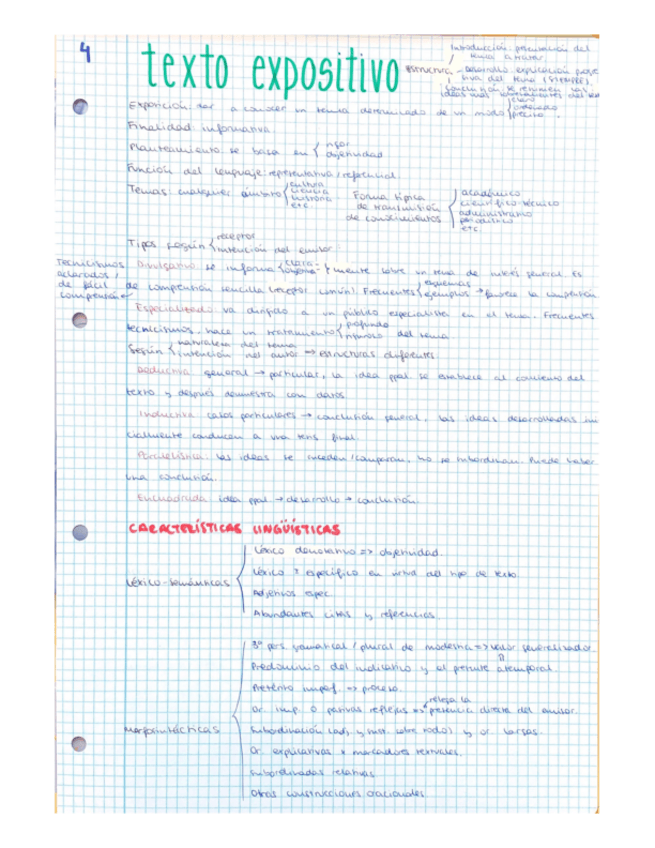 4
texto expositivo
Estructura
Introducción: presentación del
tema a tratar
Desarrollo: explicación
siva del tema (SIEMPRE)
Conclusión: se resumen las
ideas más del
Exposición: dar a conocer un tema determinado de un modo { claro
ordenado
preciso
Finalidad: informativa
Planteamiento: se basa en { rigor
objetividad
Función del lenguaje: representativa / referencial
Temas: cualquier ámbito { cultura
ciencia
historia
etc
Forma típica
de transmisión
de conocimientos
académico
científico-técnico
administrativo
periodístico
etc
Tipos según { receptor
intención del emisor
Tecnicismos
aclarados /
de fácil
comprensión
Divulgativo: se informa { clara-
mente sobre un tema de interés general. Es
de comprensión sencilla (receptor común). Frecuentes { esquemas
ejemplos → favorece la comprensión
Especializado: va dirigido a un público especialista en el tema. Frecuentes
tecnicismos, hace un tratamiento { profundo
riguroso del tema
Según { naturaleza del tema
intención del autor → estructuras diferentes
Deductiva: general → particular, la idea ppal se establece al comienzo del
texto y después demuestra con datos
Inductiva: casos particulares → conclusión general. Las ideas desarrolladas ini
cialmente conducen a una tesis final.
Paralelística: las ideas se suceden/comparan, no se subordinan. Puede haber
una conclusión.
Encuadrada: idea ppal → desarrollo → conclusión.
CARACTERÍSTICAS LINGÜÍSTICAS
Léxico-semánticas
Léxico denotativo => objetividad.
Léxico específico en del tipo de texto.
Adjetivos espec.
Abundantes citas y referencias.
Morfosintácticas
3ª pers gramatical / plural de modestia => valor generalizador
Predominio del indicativo y el presente atemporal.
Pretérito imperf. => proceso.
Or. imp. o pasivas reflejas => relega la
presencia directa del emisor.
Subordinación (adj. y sust. sobre todo) y or. largas.
Or. explicativas y marcadores textuales.
Subordinadas relativas
Otras construcciones oracionales